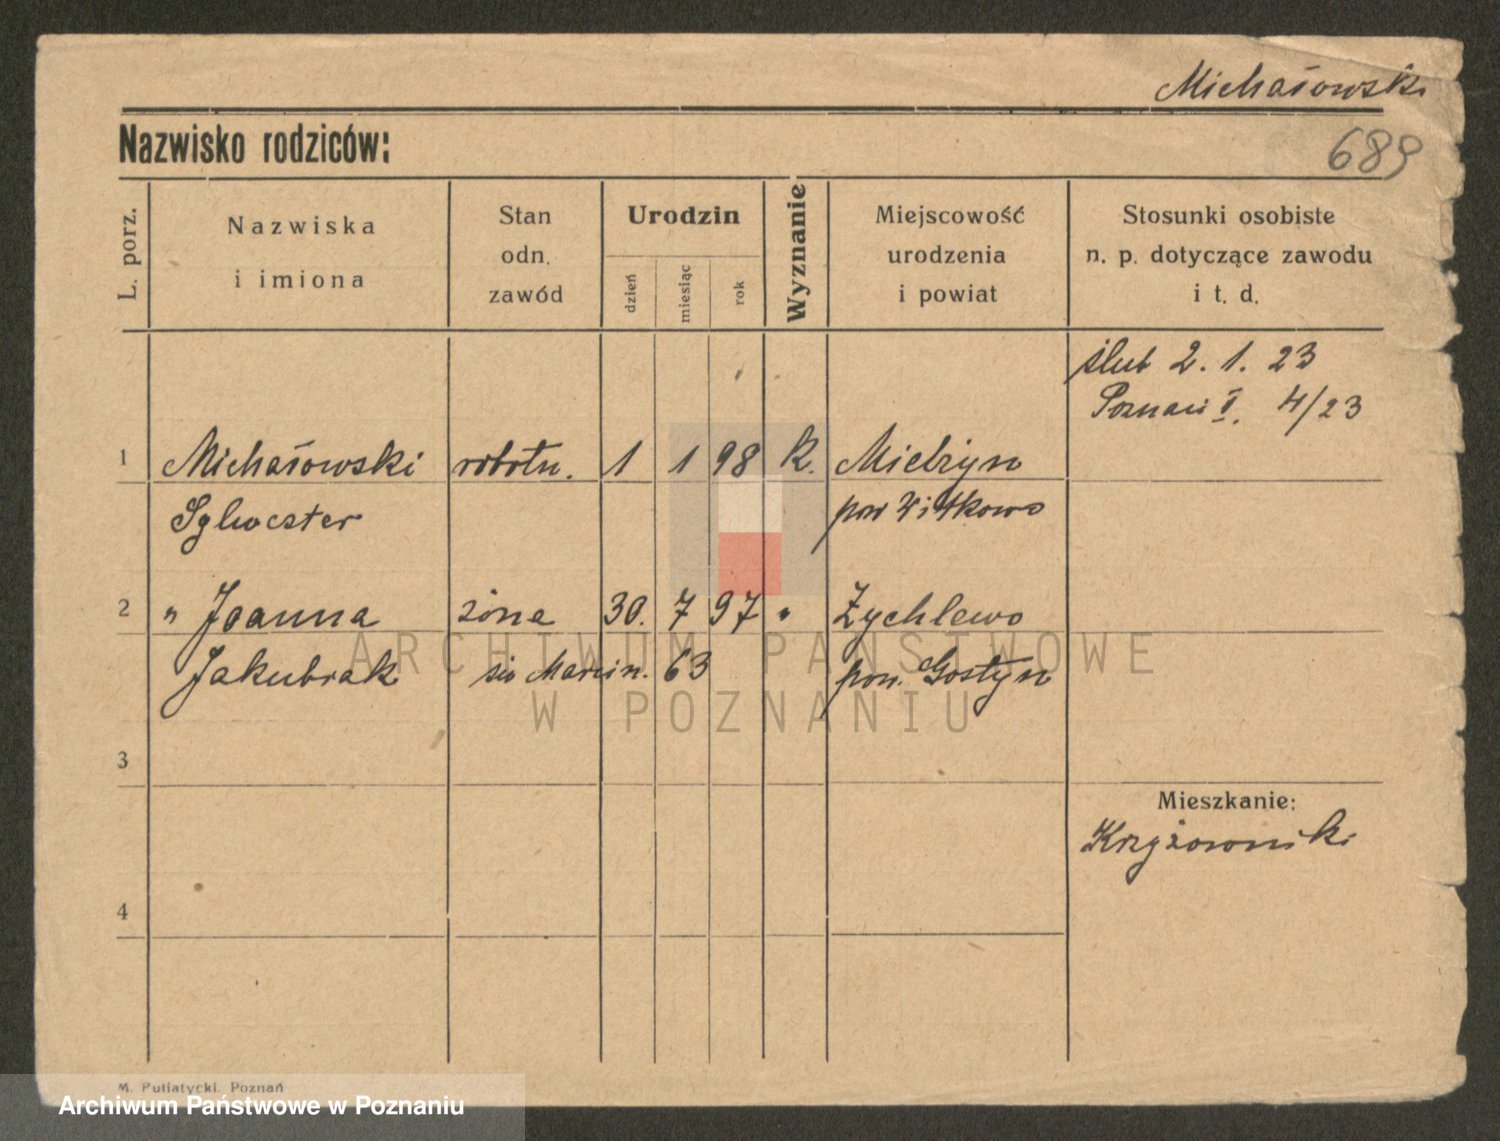 Michałowski
Nazwisko rodziców:
689
L. porz.
Nazwiska
i imiona
Stan
odn.
zawód
Urodzin
dzień
miesiąc
rok
Wyznanie
Miejscowość
urodzenia
i powiat
Stosunki osobiste
n. p. dotyczące zawodu
i t. d.
ślub 2. 1. 23
Poznań I. 4/23
1 Michałowski robotn. 1 1 98 k. Mielżyn
Sylwester pow Witkowo
2 " Joanna żona 30. 7 97 " Żychlewo
Jakubiak św Marcin. 63 pow. Gostyn
ARCHIWUM PAŃSTWOWE
W POZNANIU
3
Mieszkanie:
Krzyżowniki
4
M. Putiatycki, Poznań
Archiwum Państwowe w Poznaniu